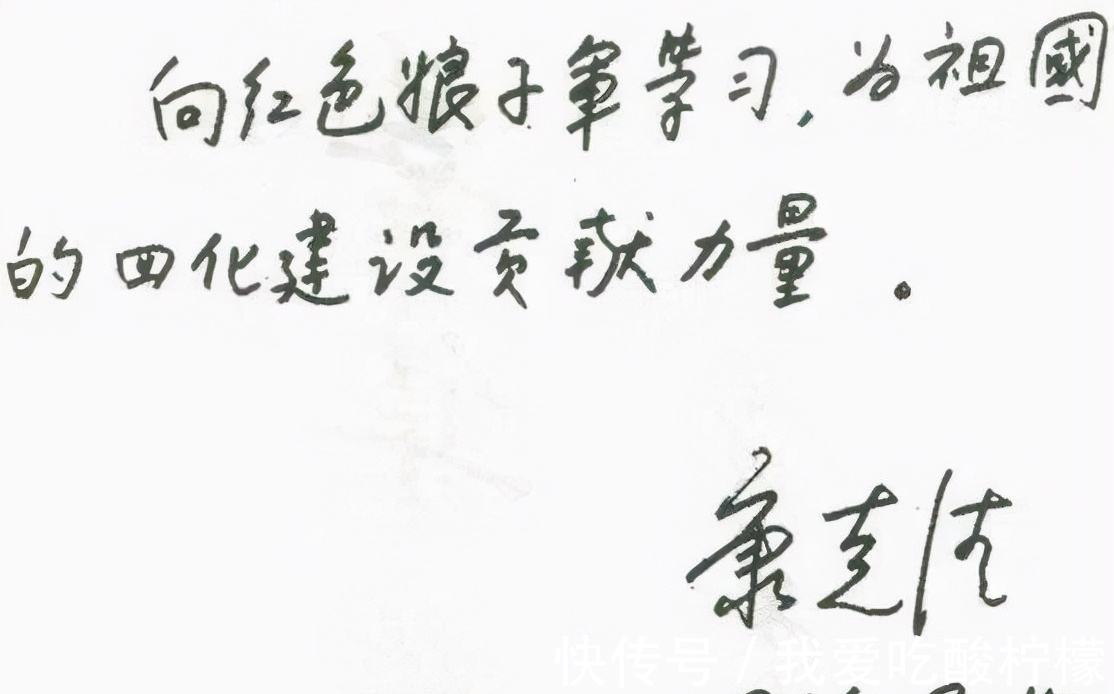 向红色娘子軍学习,为祖國
的四化建设贡献力量.
康克清
快传号/我爱吃酸柠檬